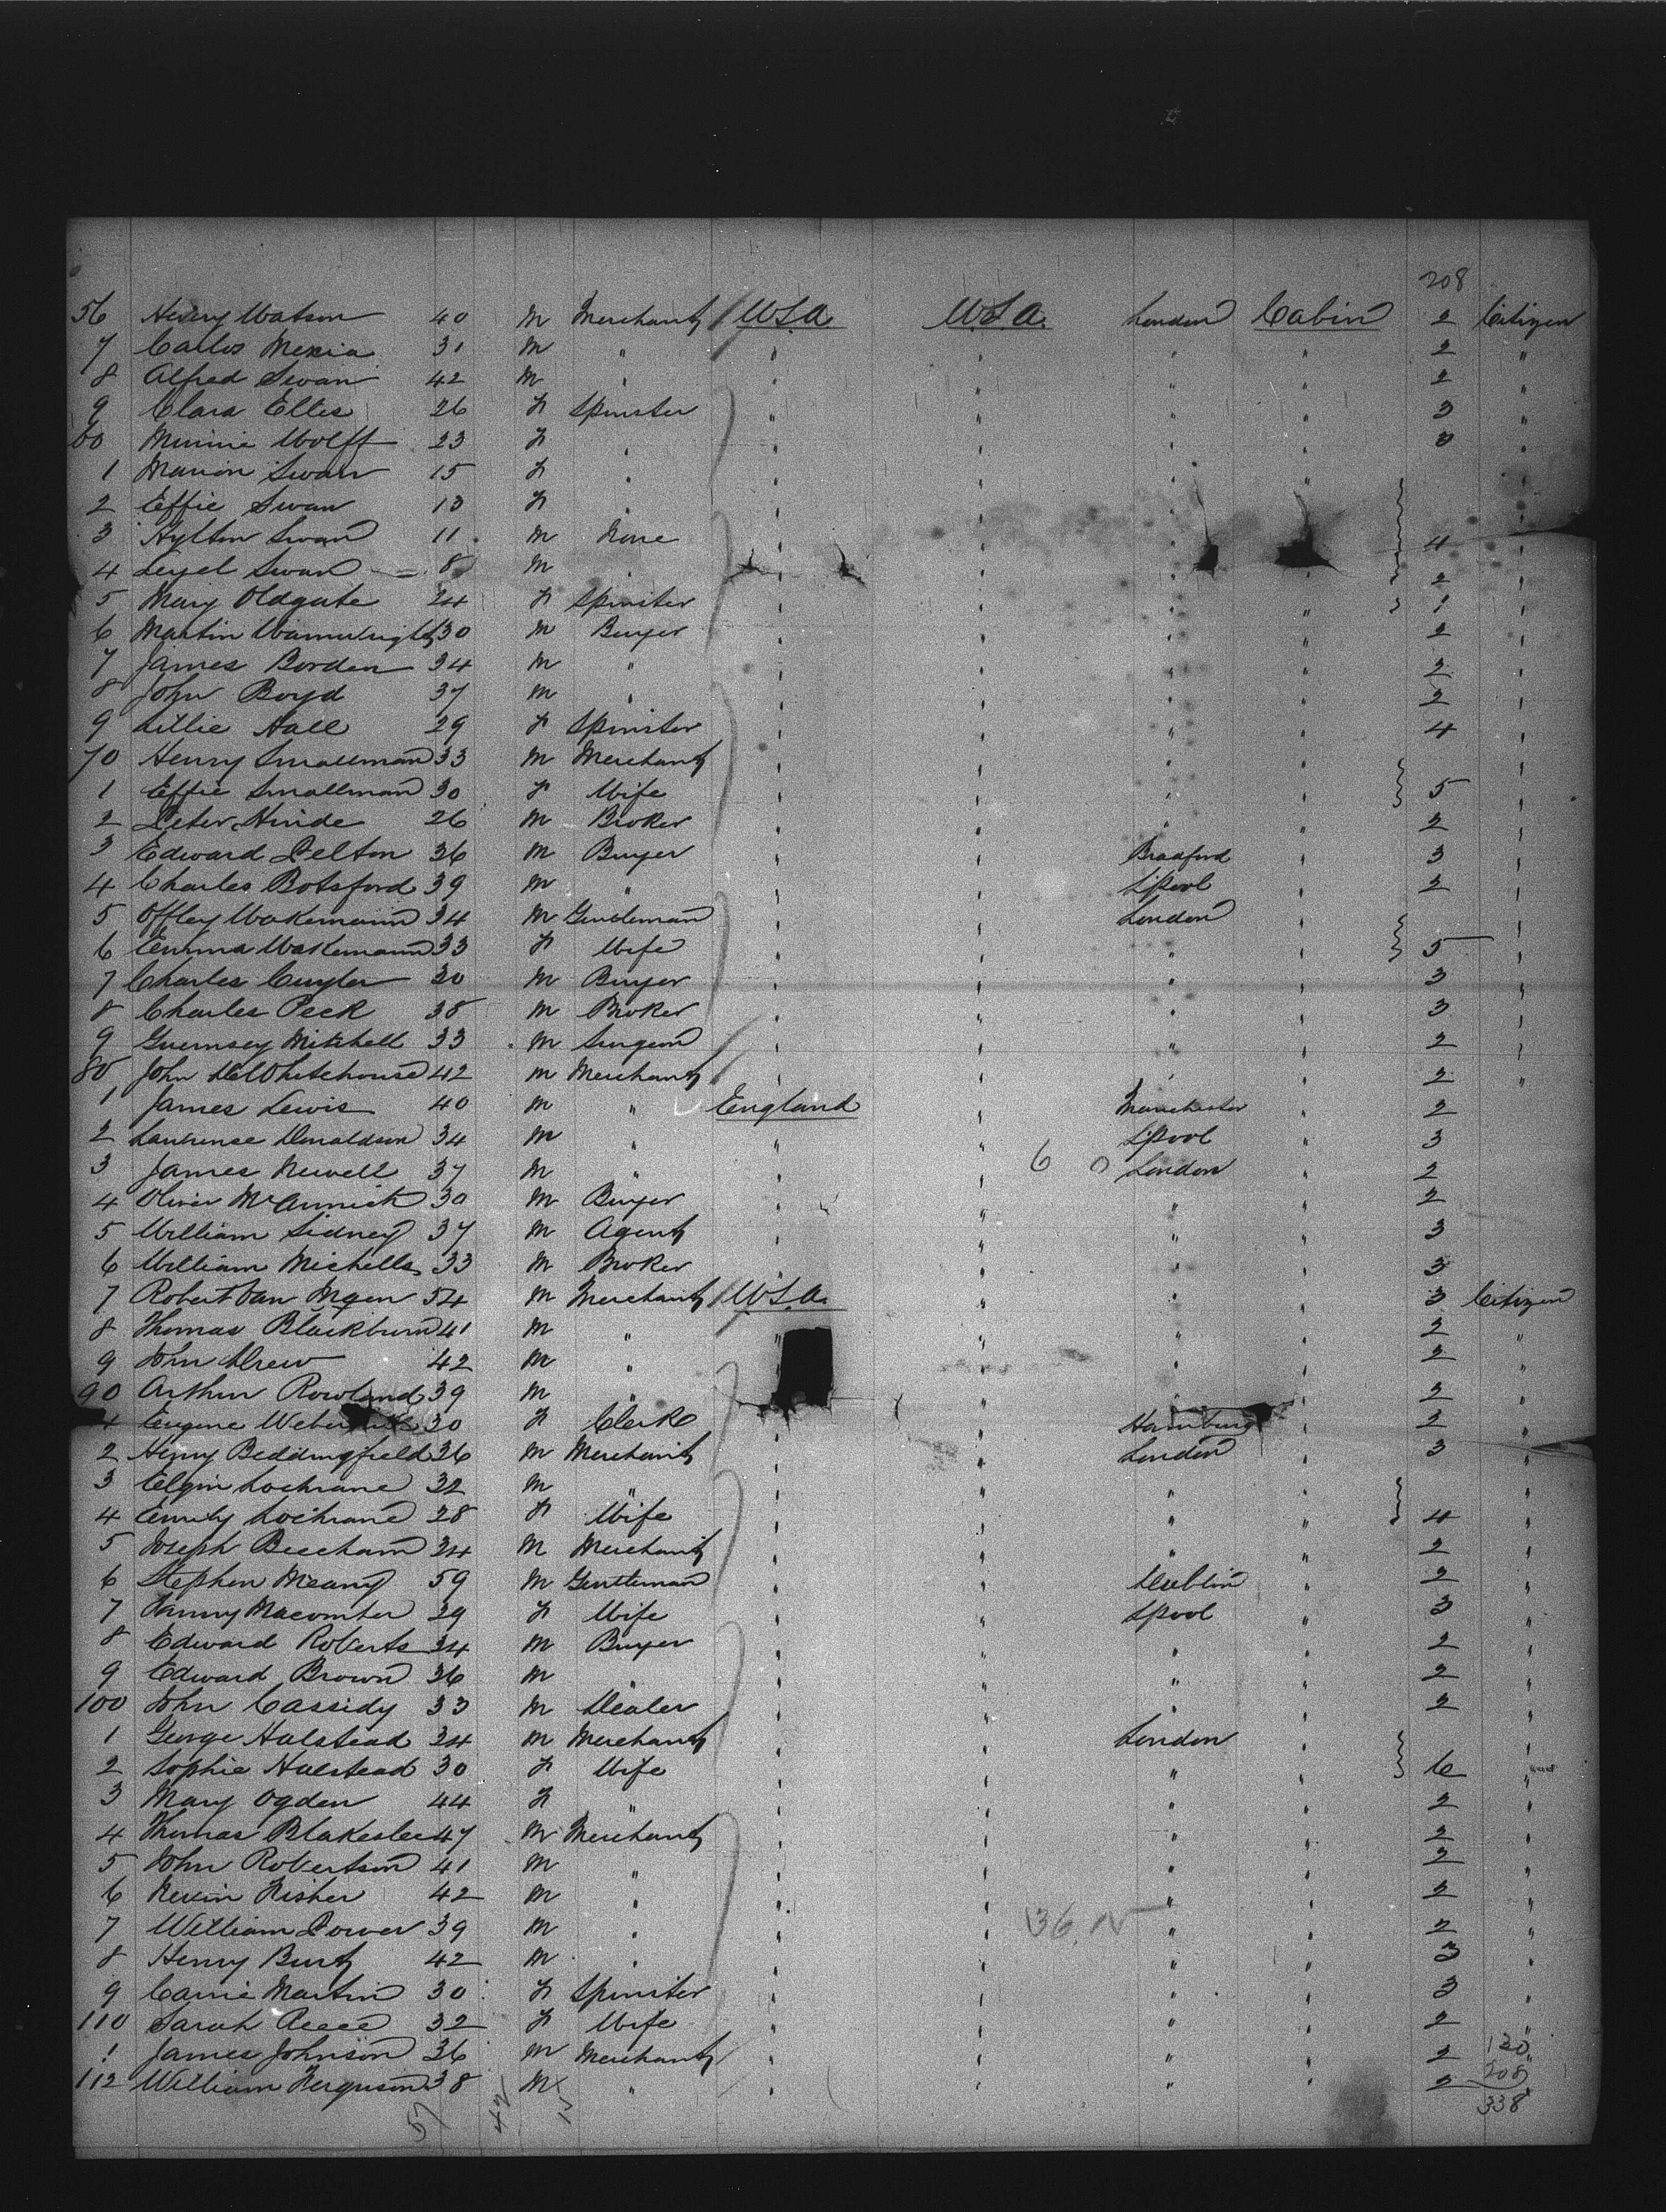 208
56 Henry Watson 40 M Merchant U.S.A. U.S.A. London Cabin 2 Citizen
7 Carlos Mexia 31 M " " " " " 2 "
8 Alfred Swan 42 M " " " " " 2 "
9 Clara Ellis 26 F Spinster " " " " 3 "
60 Minnie Wolff 23 F " " " " " 3 "
1 Marion Swan 15 F " " " " " "
2 Effie Swan 13 F " " " " " "
3 Hylton Swan 11 M None " " " " 4 "
4 Swan 8 M " " " " " 2 "
5 Mary Oldgate 24 F Spinster " " " " 1 "
6 Martin Wainwright 30 M Buyer " " " " 2 "
7 James Borden 34 M " " " " " 2 "
8 John Boyd 37 M " " " " " 2 "
9 Lillie Hall 29 F Spinster " " " " 4 "
70 Henry Smallman 33 M Merchant " " " " "
1 Effie Smallman 30 F Wife " " " " 5 "
2 Peter Hinde 26 M Broker " " " " 2 "
3 Edward Pelton 36 M Buyer " " Bradford " 3 "
4 Charles Botsford 39 M " " " L'Pool " 2 "
5 Offley Wakemann 34 M Gentleman " " London " "
6 Emma Wakemann 33 F Wife " " " " 5 "
7 Charles Cuyler 30 M Buyer " " " " 3 "
8 Charles Peck 38 M Broker " " " " 3 "
9 Guernsey Mitchell 33 M Surgeon " " " " 2 "
80 John DeWhitehouse 42 M Merchant " " " " 2 "
1 James Lewis 40 M " England " Manchester " 2
2 Lawrence Donaldson 34 M " " " L'Pool " 3
3 James Newell 37 M " " " 6 0 London " 2
4 Oliver 30 M Buyer " " " " 2
5 William Sidney 37 M Agent " " " " 3
6 William Michells 33 M Broker " " " " 3
7 Robert Van 54 M Merchant U.S.A. " " " 3 Citizen
8 Thomas Blackburn 41 M " " " " " 2 "
9 John Drew 42 M " " " " 2 "
90 Arthur Rowland 39 M " " " " 2 "
1 Eugene 30 F Clerk " " Hamburg " 2 "
2 Henry Beddingfield 36 M Merchant " " London " 3 "
3 Elgin Lochrane 32 M " " " " " "
4 Emily Lochrane 28 F Wife " " " " 4 "
5 Joseph Beecham 34 M Merchant " " " " 2 "
6 Stephen Meany 59 M Gentleman " " Dublin " 2 "
7 Fanny Macomber 29 F Wife " " L'Pool " 3 "
8 Edward Roberts 34 M Buyer " " " " 2 "
9 Edward Brown 36 M " " " " " 2 "
100 John Cassidy 33 M Dealer " " " " 2 "
1 George Halstead 34 M Merchant " " London " "
2 Sophie Halstead 30 F Wife " " " " 6 "
3 Mary Ogden 44 F " " " " " 2 "
4 Thomas Blakeslee 47 M Merchant " " " " 2 "
5 John Robertson 41 M " " " " " 2 "
6 Fisher 42 M " " " " " 2 "
7 William Power 39 M " " " 136 " " 2 "
8 Henry Burt 42 M " " " " " 3 "
9 Carrie Martin 30 F Spinster " " " " 3 "
110 Sarah Reece 32 F Wife " " " " 2 "
1 James Johnson 36 M Merchant " " " " 2 130 "
112 William Ferguson 38 M " " " " " 2 208 "
57 42 15 338